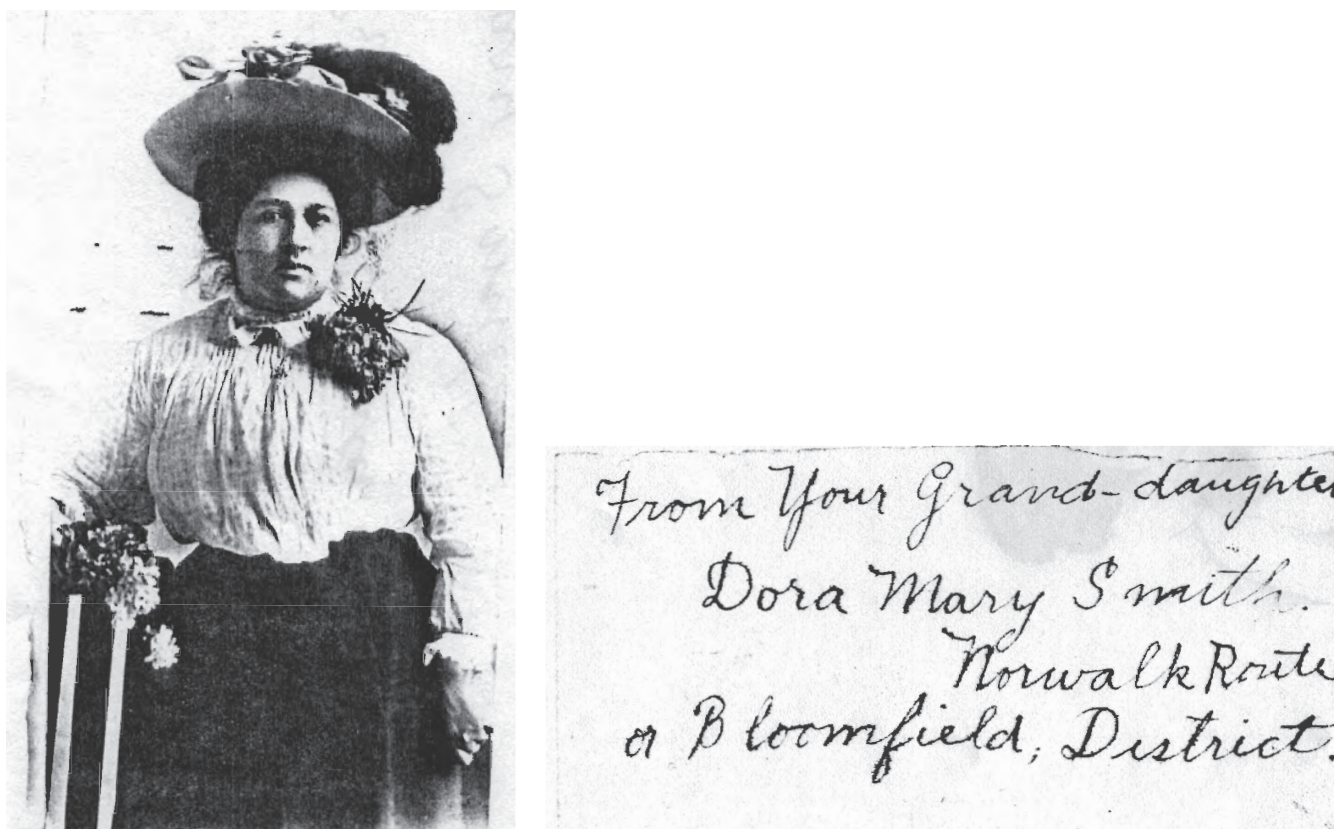 From Your Grand-daughter
Dora Mary Smith.
Norwalk Route
or Bloomfield, District.